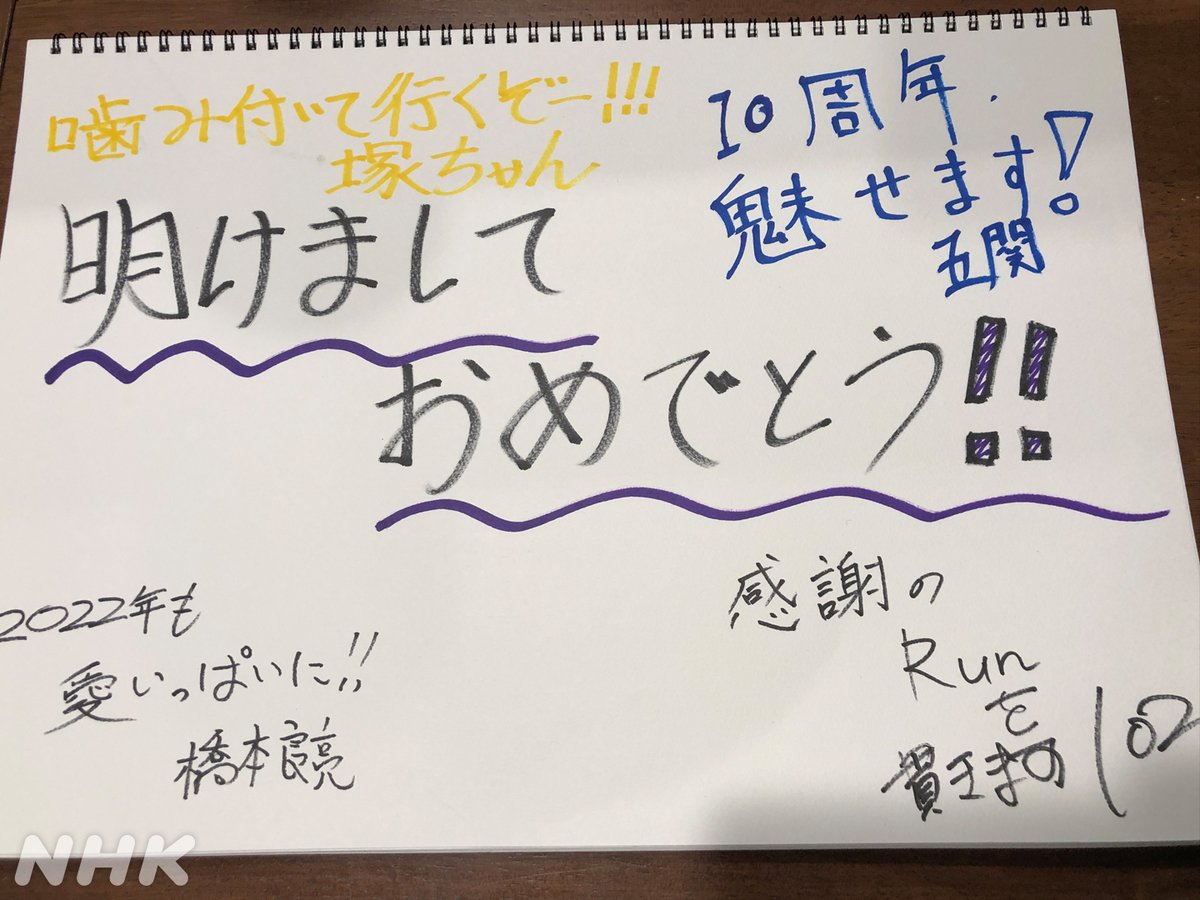 噛み付いて行くぞー!!!
塚ちゃん
10周年、
魅せます!
五関
明けまして
おめでとう!!
2022年も
愛いっぱいに!!
橋本良亮
感謝の
Run
を
NHK